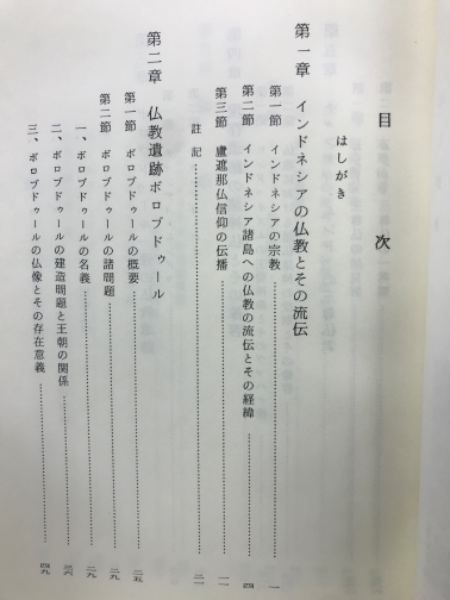 目次
はしがき
第一章 インドネシアの仏教とその流伝
第一節 インドネシアの宗教 一
第二節 インドネシア諸島への仏教の流伝とその経緯 四
第三節 盧遮那仏信仰の伝播 一一
註記 二一
第二章 仏教遺跡ボロブドゥール
第一節 ボロブドゥールの概要 二五
第二節 ボロブドゥールの諸問題 二九
一、ボロブドゥールの名義 二九
二、ボロブドゥールの建造問題と王朝の関係 三六
三、ボロブドゥールの仏像とその存在意義 四九